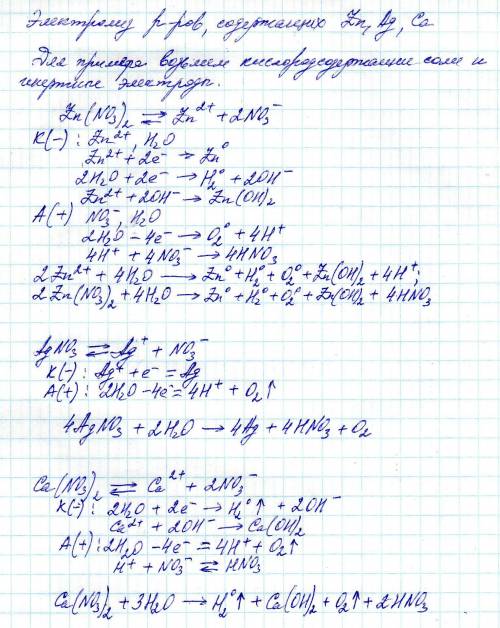 Электролиз р-ров, содержащих Zn, Ag, Ca
Для примера возьмем кислородсодержащие соли и
инертные электроды.
Zn(NO₃)₂ ⇌ Zn²⁺ + 2NO₃⁻
К(-) : Zn²⁺, H₂O
Zn²⁺ + 2e⁻ → Zn⁰
2H₂O + 2e⁻ → H₂⁰ + 2OH⁻
Zn²⁺ + 2OH⁻ → Zn(OH)₂
А(+) NO₃⁻, H₂O
2H₂O - 4e⁻ → O₂⁰ + 4H⁺
4H⁺ + 4NO₃⁻ → 4HNO₃
2Zn²⁺ + 4H₂O → Zn⁰ + H₂⁰ + O₂⁰ + Zn(OH)₂ + 4H⁺;
2Zn(NO₃)₂ + 4H₂O → Zn⁰ + H₂⁰ + O₂⁰ + Zn(OH)₂ + 4HNO₃
AgNO₃ ⇌ Ag⁺ + NO₃⁻
К(-) : Ag⁺ + e⁻ = Ag
А(+) : 2H₂O - 4e⁻ = 4H⁺ + O₂↑
4AgNO₃ + 2H₂O → 4Ag + 4HNO₃ + O₂
Ca(NO₃)₂ ⇌ Ca²⁺ + 2NO₃⁻
К(-) : 2H₂O + 2e⁻ → H₂⁰↑ + 2OH⁻
Ca²⁺ + 2OH⁻ → Ca(OH)₂
А(+) : 2H₂O - 4e⁻ = 4H⁺ + O₂↑
H⁺ + NO₃⁻ ⇌ HNO₃
Ca(NO₃)₂ + 3H₂O → H₂⁰↑ + Ca(OH)₂ + O₂↑ + 2HNO₃